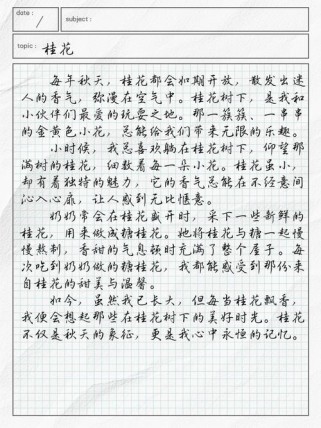 date:
/
subject:
topic:
桂花
每年秋天，桂花都会如期开放，散发出迷
人的香气，弥漫在空气中。桂花树下，是我和
小伙伴们最爱的玩耍之地。那一簇簇、一串串
的金黄色小花，总能给我们带来无限的乐趣。
小时候，我总喜欢躺在桂花树下，仰望那
满树的桂花，细数着每一朵小花。桂花虽小，
却有着独特的魅力，它的香气总能在不经意间
沁入心扉，让人感到无比惬意。
奶奶常会在桂花盛开时，采下一些新鲜的
桂花，用来做成糖桂花。她将桂花与糖一起慢
慢熬制，香甜的气息顿时充满了整个屋子。每
次吃到奶奶做的糖桂花，我都能感受到那份来
自桂花的甜美与温馨。
如今，虽然我已长大，但每当桂花飘香，
我便会想起那些在桂花树下的美好时光。桂花
不仅是秋天的象征，更是我心中永恒的记忆。